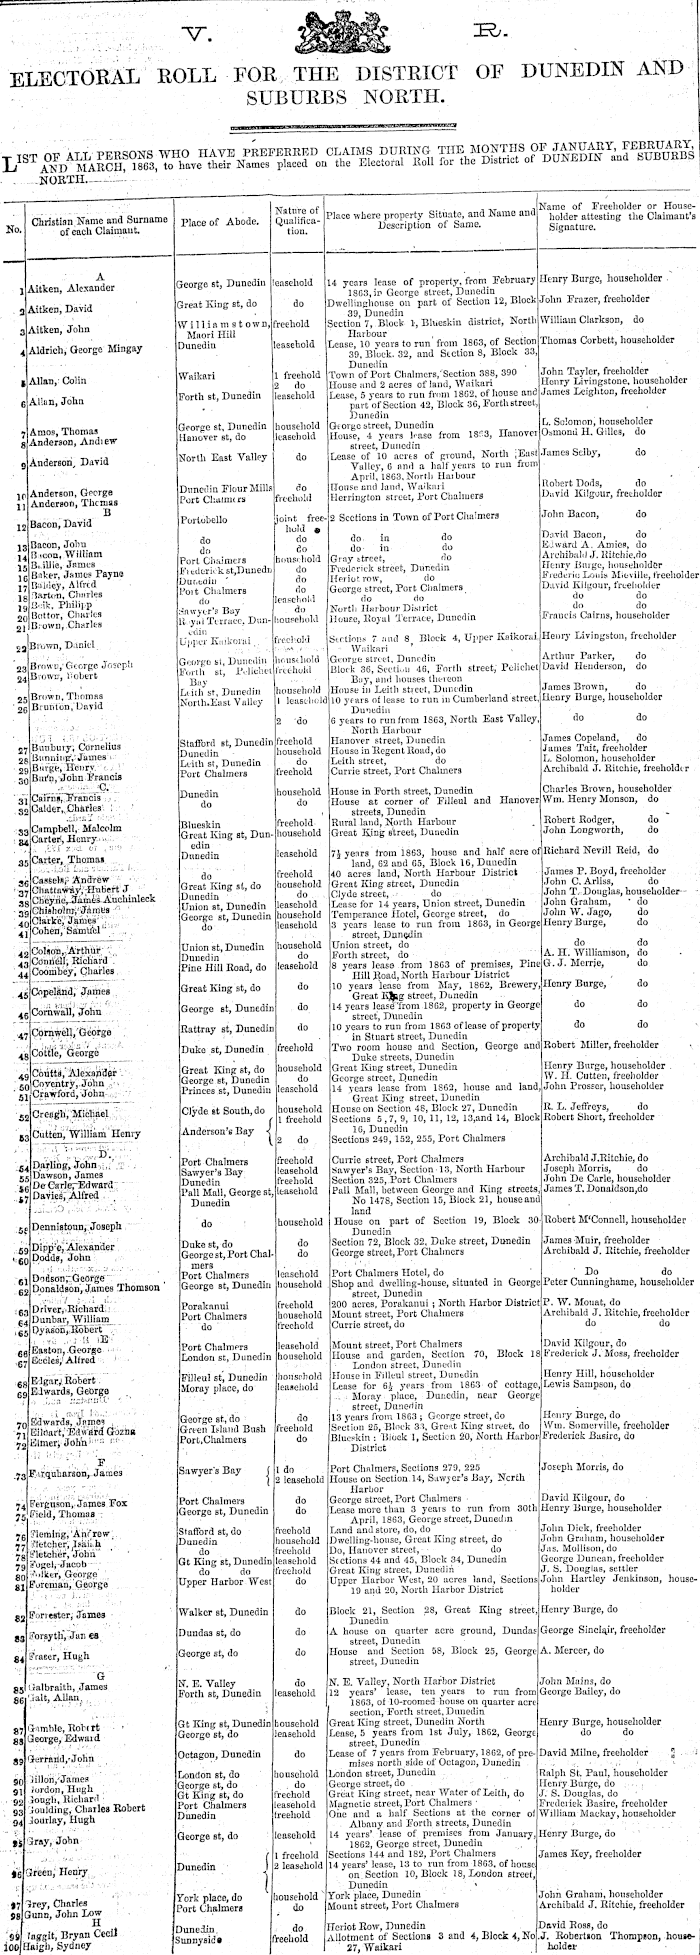 V. R.
ELECTORAL ROLL FOR THE DISTRICT OF DUNEDIN AND
SUBURBS NORTH.
LIST OF ALL PERSONS WHO HAVE PREFERRED CLAIMS DURING THE MONTHS OF JANUARY, FEBRUARY,
AND MARCH, 1863, to have their Names placed on the Electoral Roll for the District of DUNEDIN and SUBURBS
NORTH.
No. Christian Name and Surname of each Claimant. Place of Abode. Nature of Qualification. Place where property Situate, and Name and Description of Same. Name of Freeholder or Householder attesting the Claimant's Signature.
A
1 Aitken, Alexander George st, Dunedin leasehold 14 years lease of property, from February 1863, in George street, Dunedin Henry Burge, householder
2 Aitken, David Great King st, do do Dwellinghouse on part of Section 12, Block 39, Dunedin John Frazer, freeholder
3 Aitken, John Williamstown, Maori Hill freehold Section 7, Block 1, Blueskin district, North Harbour William Clarkson, do
4 Aldrich, George Mingay Dunedin leasehold Lease, 10 years to run from 1863, of Section 39, Block. 32, and Section 8, Block 33, Dunedin Thomas Corbett, householder
5 Allan, Colin Waikari 1 freehold Town of Port Chalmers, Section 388, 390 John Tayler, freeholder
2 do House and 2 acres of land, Waikari Henry Livingstone, householder
6 Allan, John Forth st, Dunedin leasehold Lease, 5 years to run from 1862, of house and part of Section 42, Block 36, Forth street, Dunedin James Leighton, freeholder
7 Amos, Thomas George st, Dunedin household George street, Dunedin L. Solomon, householder
8 Anderson, Andrew Hanover st, do leasehold House, 4 years lease from 1863, Hanover street, Dunedin Osmond H. Gilles, do
9 Anderson, David North East Valley do Lease of 10 acres of ground, North East Valley, 6 and a half years to run from April, 1863, North Harbour James Seiby, do
10 Anderson, George Dunedin Flour Mills do House and land, Waikari Robert Dods, do
11 Anderson, Thomas Port Chalmers freehold Herrington street, Port Chalmers David Kilgour, freeholder
B
12 Bacon, David Portobello joint freehold 2 Sections in Town of Port Chalmers John Bacon, do
13 Bacon, John do do do in do David Bacon, do
14 Bacon, William do do do in do Edward A. Amies, do
15 Baillie, James Port Chalmers household Gray street, do Archibald J. Ritchie, do
16 Baker, James Payne Frederick st, Dunedn do Frederick street, Dunedin Henry Burge, householder
17 Bakley, Alfred Dunedin do Heriot row, do Frederic Louis Mieville, freeholder
18 Barton, Charles Port Chalmers do George street, Port Chalmers David Kilgour, freeholder
19 Beik, Philipp do leasehold do do do do
20 Bottor, Charles Sawyer's Bay do North Harbour District do do
21 Brown, Charles Royal Terrace, Dunedin household House, Royal Terrace, Dunedin Francis Cairns, householder
22 Brown, Daniel Upper Kaikorai freehold Sections 7 and 8, Block 4, Upper Kaikorai, Waikari Henry Livingston, freeholder
23 Brown, George Joseph George st, Dunedin household George street, Dunedin Arthur Parker, do
24 Brown, Robert Forth st, Pelichet Bay freehold Block 36, Section 46, Forth street, Pelichet Bay, and houses thereon David Henderson, do
25 Brown, Thomas Leith st, Dunedin household House in Leith street, Dunedin James Brown, do
26 Brunton, David North East Valley 1 leasehold 10 years of lease to run in Cumberland street, Dunedin Henry Burge, householder
2 do 6 years to run from 1863, North East Valley, North Harbour do do
27 Bunbury, Cornelius Stafford st, Dunedin freehold Hanover street, Dunedin James Copeland, do
28 Bunning, James Dunedin household House in Regent Road, do James Tait, freeholder
29 Burge, Henry Leith st, Dunedin household Leith street, do L. Solomon, householder
30 Burn, John Francis Port Chalmers freehold Currie street, Port Chalmers Archibald J. Ritchie, freeholder
C.
31 Cairns, Francis Dunedin household House in Forth street, Dunedin Charles Brown, householder
32 Calder, Charles do do House at corner of Filleul and Hanover streets, Dunedin Wm. Henry Monson, do
33 Campbell, Malcolm Blueskin freehold Rural land, North Harbour Robert Rodger, do
34 Carter, Henry Great King st, Dunedin household Great King street, Dunedin John Longworth, do
35 Carter, Thomas Dunedin leasehold 7½ years from 1863, house and half acre of land, 62 and 65, Block 16, Dunedin Richard Nevill Reid, do
36 Cassels, Andrew do freehold 40 acres land, North Harbour District James P. Boyd, freeholder
37 Chattaway, Hubert J Great King st, do household Great King street, Dunedin John C. Arliss, do
38 Cheyne, James Auchinleck Dunedin do Clyde street, do John T. Douglas, householder
39 Chisholm, James Union st, Dunedin leasehold Lease for 14 years, Union street, Dunedin John Graham, do
40 Clarke, James George st, Dunedin household Temperance Hotel, George street, do John W. Jago, do
41 Cohen, Samuel do leasehold 3 years lease to run from 1863, in George street, Dunedin Henry Burge, do
42 Colson, Arthur Union st, Dunedin household Union street, do do do
43 Connell, Richard Dunedin do Forth street, do A. H. Williamson, do
44 Coombey, Charles Pine Hill Road, do leasehold 8 years lease from 1863 of premises, Pine Hill Road, North Harbour District G. J. Merrie, do
45 Copeland, James Great King st, do do 10 years lease from May, 1862, Brewery, Great King street, Dunedin Henry Burge, do
46 Cornwall, John George st, Dunedin do 14 years lease from 1862, property in George street, Dunedin do do
47 Cornwell, George Rattray st, Dunedin do 10 years to run from 1863 of lease of property in Stuart street, Dunedin do do
48 Cottle, George Duke st, Dunedin freehold Two room house and Section, George and Duke streets, Dunedin Robert Miller, freeholder
49 Coutts, Alexander Great King st, do household Great King street, Dunedin Henry Burge, householder
50 Coventry, John George st, Dunedin do George street, Dunedin W. H. Cutten, freeholder
51 Crawford, John Princes st, Dunedin leasehold 14 years lease from 1862, house and land, Great King street, Dunedin John Prosser, householder
52 Creagh, Michael Clyde st South, do household House on Section 48, Block 27, Dunedin R. L. Jeffreys, do
53 Cutten, William Henry Anderson's Bay 1 freehold Sections 5, 7, 9, 10, 11, 12, 13, and 14, Block 16, Dunedin Robert Short, freeholder
2 do Sections 249, 152, 255, Port Chalmers
D.
54 Darling, John Port Chalmers freehold Currie street, Port Chalmers Archibald J. Ritchie, do
55 Dawson, James Sawyer's Bay leasehold Sawyer's Bay, Section 13, North Harbour Joseph Morris, do
56 De Carle, Edward Dunedin freehold Section 325, Port Chalmers John De Carle, householder
57 Davies, Alfred Pall Mall, George st, Dunedin leasehold Pall Mall, between George and King streets, No 1478, Section 15, Block 21, house and land James T. Donaldson, do
58 Dennistoun, Joseph do household House on part of Section 19, Block 30 Dunedin Robert McConnell, householder
59 Dippie, Alexander Duke st, do do Section 72, Block 32, Duke street, Dunedin James Muir, freeholder
60 Dodds, John George st, Port Chalmers do George street, Port Chalmers Archibald J. Ritchie, freeholder
61 Dodson, George Port Chalmers leasehold Port Chalmers Hotel, do Do do
62 Donaldson, James Thomson George st, Dunedin household Shop and dwelling-house, situated in George street, Dunedin Peter Cunninghame, householder
63 Driver, Richard Porakanui freehold 200 acres, Porakanui; North Harbor District P. W. Mouat, do
64 Dunbar, William Port Chalmers household Mount street, Port Chalmers Archibald J. Ritchie, freeholder
65 Dyason, Robert do freehold Currie street, do do do
E
66 Easton, George Port Chalmers leasehold Mount street, Port Chalmers David Kilgour, do
67 Eccles, Alfred London st, Dunedin household House and garden, Section 70, Block 18 London street, Dunedin Frederick J. Moss, freeholder
68 Edgar, Robert Filleul st, Dunedin household House in Filleul street, Dunedin Henry Hill, householder
69 Edwards, George Moray place, do leasehold Lease for 6½ years from 1863 of cottage, Moray place, Dunedin, near George street, Dunedin Lewis Sampson, do
70 Edwards, James George st, do do 13 years from 1863; George street, do Henry Burge, do
71 Eileart, Edward Gozna Green Island Bush freehold Section 25, Block 33, Great King street, do Wm. Somerville, freeholder
72 Elmer, John Port Chalmers do Blueskin: Block 1, Section 20, North Harbor District Frederick Basire, do
F
73 Farquharson, James Sawyer's Bay 1 do Port Chalmers, Sections 279, 225 Joseph Morris, do
2 leasehold House on Section 14, Sawyer's Bay, North Harbor
74 Ferguson, James Fox Port Chalmers do George street, Port Chalmers David Kilgour, do
75 Field, Thomas George st, Dunedin do Lease more than 3 years to run from 30th April, 1863, George street, Dunedin Henry Burge, householder
76 Fleming, Andrew Stafford st, do freehold Land and store, do, do John Dick, freeholder
77 Fletcher, Isaiah Dunedin household Dwelling-house, Great King street, do John Graham, householder
78 Fletcher, John do freehold Do, Hanover street, do Jas. Mollison, do
79 Fogel, Jacob Gt King st, Dunedin leasehold Sections 44 and 45, Block 34, Dunedin George Duncan, freeholder
80 Folker, George do do freehold Great King street, Dunedin J. S. Douglas, settler
81 Foreman, George Upper Harbor West do Upper Harbor West, 20 acres land, Sections 19 and 20, North Harbor District John Hartley Jenkinson, householder
82 Forrester, James Walker st, Dunedin do Block 21, Section 28, Great King street, Dunedin Henry Burge, do
83 Forsyth, James Dundas st, do do A house on quarter acre ground, Dundas street, Dunedin George Sinclair, freeholder
84 Fraser, Hugh George st, do do House and Section 58, Block 25, George street, Dunedin A. Mercer, do
G
85 Galbraith, James N. E. Valley do N. E. Valley, North Harbor District John Mains, do
86 Galt, Allan Forth st, Dunedin leasehold 12 years' lease, ten years to run from 1863, of 10-roomed house on quarter acre section, Forth street, Dunedin George Bailey, do
87 Gamble, Robert Gt King st, Dunedin household Great King street, Dunedin North Henry Burge, householder
88 George, Edward George st, do leasehold Lease, 5 years from 1st July, 1862, George street, Dunedin do do
89 Gerrand, John Octagon, Dunedin do Lease of 7 years from February, 1862, of premises north side of Octagon, Dunedin David Milne, freeholder
90 Gillon, James London st, do household London street, Dunedin Ralph St. Paul, householder
91 Gordon, Hugh George st, do do George street, do Henry Burge, do
92 Gough, Richard Gt King st, do freehold Great King street, near Water of Leith, do J. S. Douglas, do
93 Goulding, Charles Robert Port Chalmers leasehold Magnetic street, Port Chalmers Frederick Basire, freeholder
94 Gourlay, Hugh Dunedin freehold One and a half Sections at the corner of Albany and Forth streets, Dunedin William Mackay, householder
95 Gray, John George st, do leasehold 14 years' lease of premises from January, 1862, George street, Dunedin Henry Burge, do
96 Green, Henry Dunedin 1 freehold Sections 144 and 182, Port Chalmers James Key, freeholder
2 leasehold 14 years' lease, 13 to run from 1863, of house on Section 10, Block 18, London street, Dunedin
97 Grey, Charles York place, do household York place, Dunedin John Graham, householder
98 Gunn, John Low Port Chalmers do Mount street, Port Chalmers Archibald J. Ritchie, freeholder
H
99 Haggit, Bryan Cecil Dunedin do Heriot Row, Dunedin David Ross, do
100 Haigh, Sydney Sunnyside freehold Allotment of Sections 3 and 4, Block 4, No 27, Waikari J. Robertson Thompson, householder